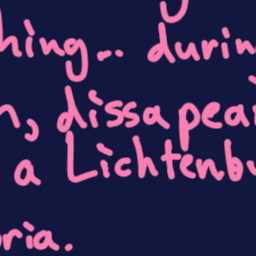 hing... durin
n, dissapear
a Lichtenbu
ria.